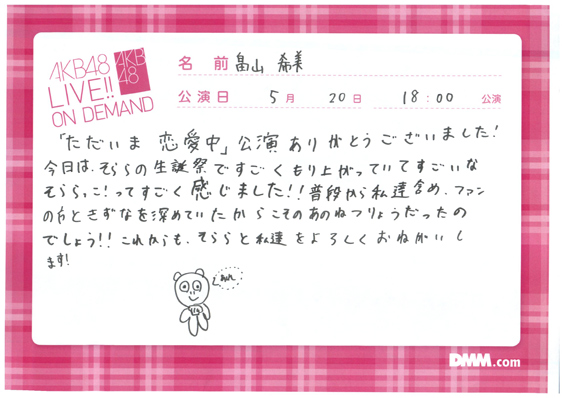 AKB48
LIVE!!
ON DEMAND
AKB
48
名 前 畠山 希美
公演日 5月 20日 18:00 公演
「ただいま 恋愛中」公演 ありがとうございました!
今日は、そららの生誕祭ですごくもり上がっていてすごいな
そららっこ!ってすごく感じました!!普段から私達含め、ファン
の方ときずなを深めていたからこそのあのねつりょうだったの
でしょう!!これからも、そららと私達をよろしくおねがいし
ます!
DMM.com